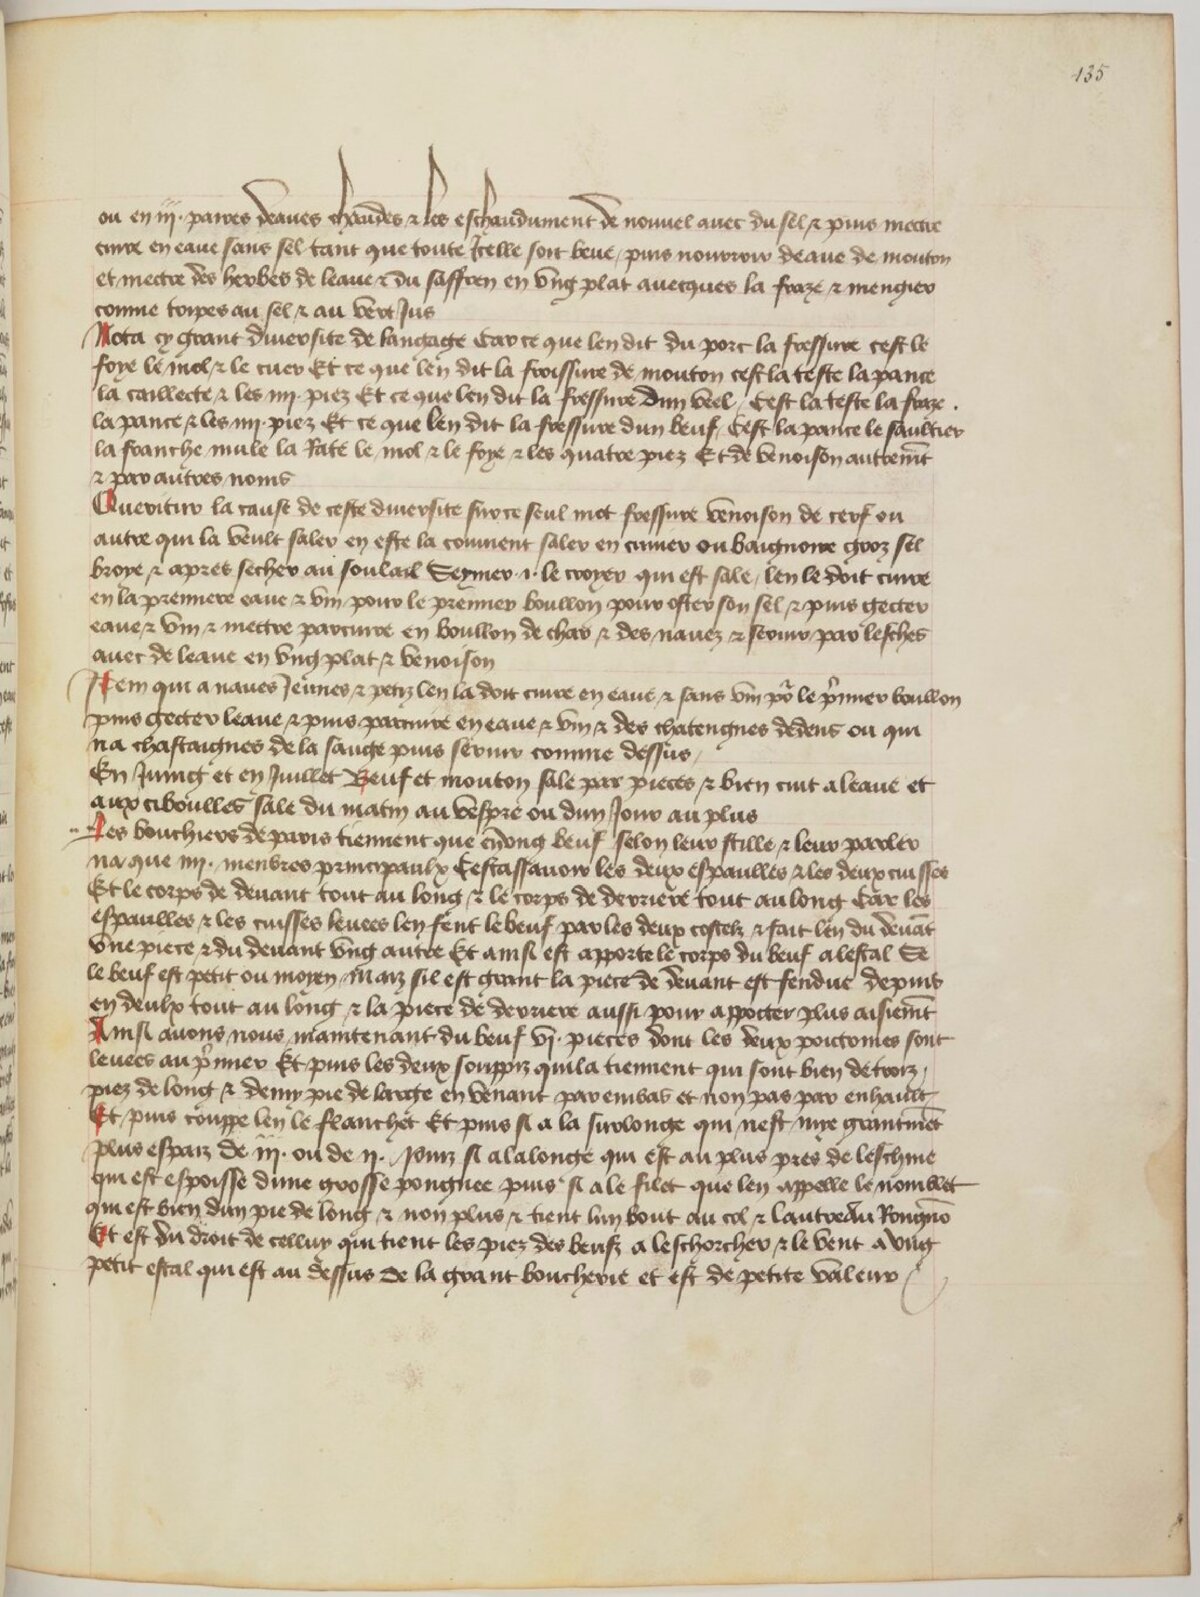 135
ou en iij. paires deaues chaudes & les eschaudument de nouvel avec du sel & puis mectre
cuire en eaue sans sel tant que toute Icelle soit beue, puis nourrir deaue de mouton
et mectre des herbes de leaue & du saffren en ung plat avecques la fraze & mengier
comme tripes au sel & au vert Jus
Nota cy grant diversite de langage Car ce que len dit du porc la fressure cest le
foye le mol & le cuer Et ce que len dit la froissure de mouton cest la teste la pance
la caillecte & les iiij. piez Et ce que len dit la fressure dun veel, Cest la teste la fraze .
la pance & les iiij. piez Et ce que len dit la fressure dun beuf, Cest la pance le saultier
la franche mule la Rate le mol & le foye & les quatre piez Et de venoison autremt
& par autres noms
Queritur la cause de ceste diversite sur ce seul mot fressure venoison de cerf ou
autre qui la veult saler en este la convient saler en cuvier ou baignoire groz sel
broye & apres secher au soulail Seymer .i. le croyer qui est sale, len le doit cuire
en la premiere eaue & vin pour le premier boullon pour oster son sel, & puis gecter
eaue & vin & mectre parcuire en boullon de char & des navez & servir par lesches
avec de leaue en ung plat & venoison
Item qui a naves Jeunes & petiz len la doit cuire en eaue & sans vin por le pmier boullon
puis gecter leaue & puis parcuire en eaue & vin & des chatengnes dedens ou qui
na chastaignes de la sauge puis servir comme dessus,
En Juing et en Juillet Beuf et mouton sale par pieces & bien cuit a leaue et
aux ciboulles sale du matin au vespre ou dun Jour au plus
Les bouchiers de paris tiennent que en ung beuf selon leur stille & leur parler
na que iiij. menbres principaulx Cestassavoir les deux espaulles & les deux cuisses
Et le corps de devant tout au long, & le corps de derriere tout au long Car les
espaulles & les cuisses levees len fent le beuf par les deux costelz & fait len du devant
une piece & du devant ung autre Et ainsi est apporte le corps du beuf a lestal Se
le beuf est petit ou moyen, Maiz sil est grant la piece de devant est fendue depuis
en deulx tout au long, & la piece de derriere aussi pour apporter plus aisiemt
Ainsi avons nous maintenant du beuf vj. pieces dont les deux poictrines sont
levees au pmier Et puis les deux souppiz qui la tiennent qui sont bien de troiz,
piez de long & demy pie de large en venant par embas et non pas par enhault
Et puis couppe len le flanchet Et puis si a la surlonge qui nest mye grantmet
plus espaiz de iij. ou de ij. doiz si a la longe qui est au plus pres de leschine
qui est espoisse dune grosse pongnee puis si a le filet que len appelle le nomblet
qui est bien dun pie de long & non plus & tient lun bout au col & lautre au Rongno
Et est du droit de celluy qui tient les piez des beufz a leschorcher & le vent a ung
petit estal qui est au dessus de la grant boucherie et est de petite valeur